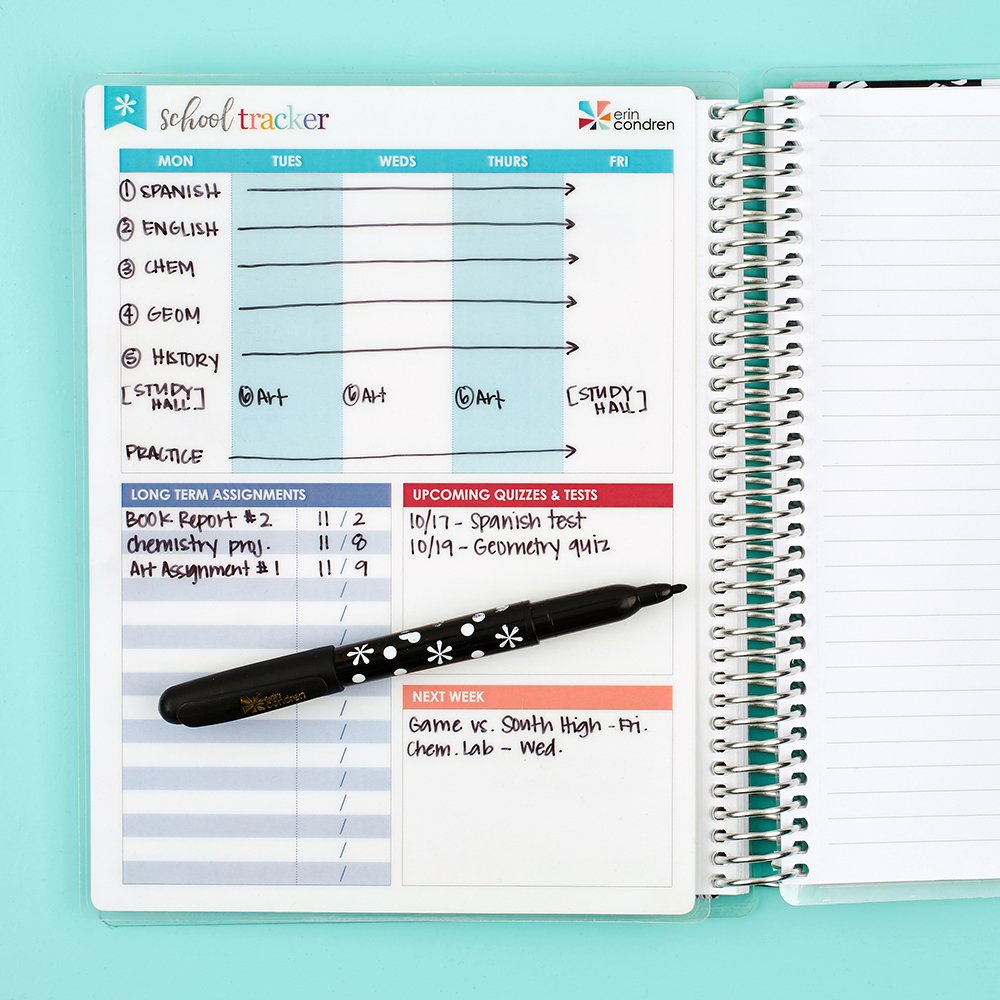 school tracker
erin condren
MON TUES WEDS THURS FRI
① SPANISH
② ENGLISH
③ CHEM
④ GEOM
⑤ HISTORY
[STUDY HALL] ⑥ Art ⑥ Art ⑥ Art [STUDY HALL]
PRACTICE
LONG TERM ASSIGNMENTS
Book Report #2 11/2
chemistry proj. 11/8
Art Assignment #1 11/9
UPCOMING QUIZZES & TESTS
10/17 - Spanish test
10/19 - Geometry quiz
NEXT WEEK
Game vs. South High - Fri.
Chem. Lab - Wed.
condren